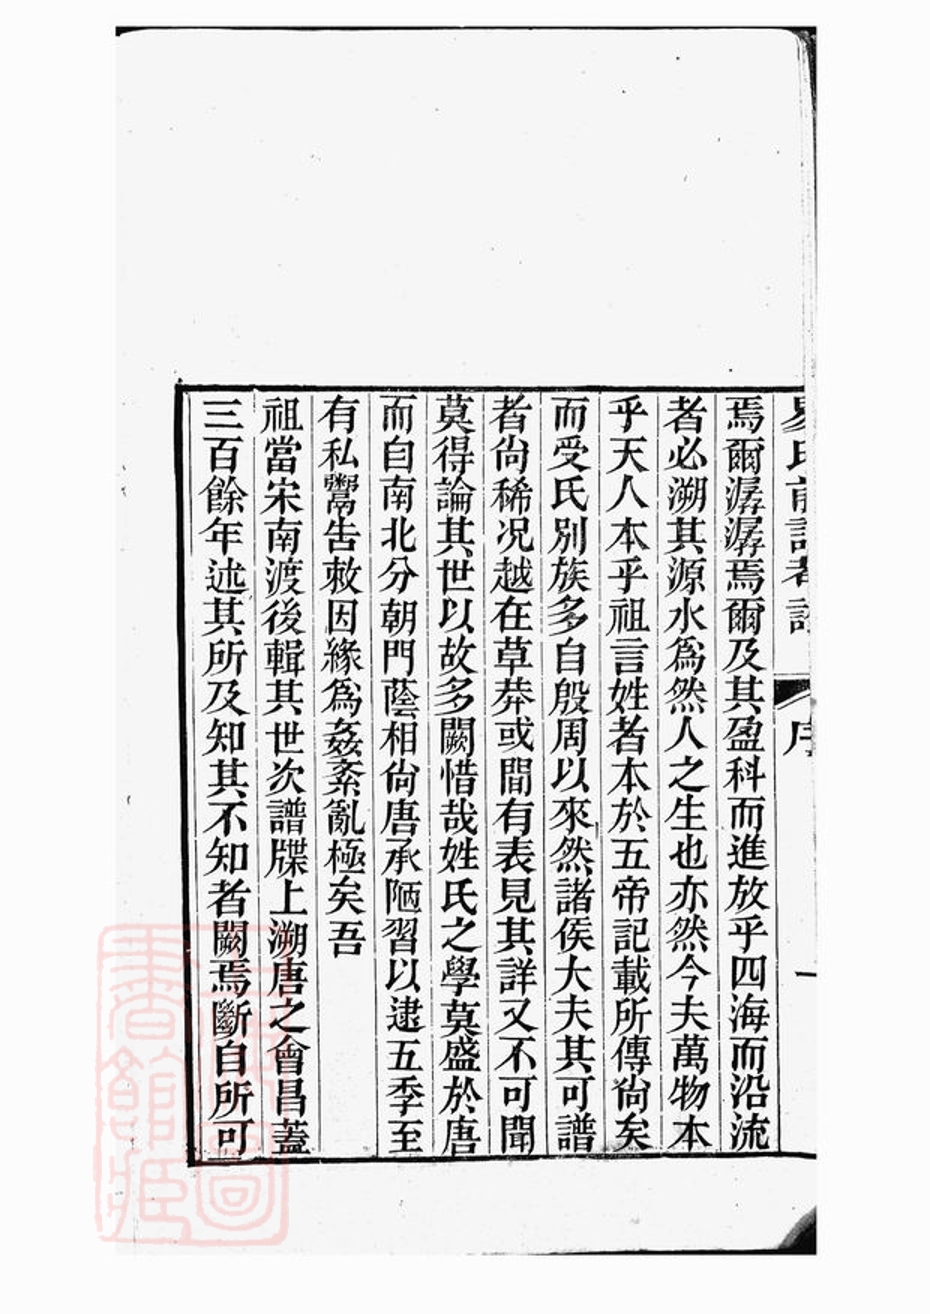 焉爾潺潺焉爾及其盈科而進放乎四海而沿流
者必溯其源水爲然人之生也亦然今夫萬物本
乎天人本乎祖言姓者本於五帝記載所傳尙矣
而受氏別族多自殷周以來然諸侯大夫其可譜
者尙稀况越在草莽或間有表見其詳又不可聞
莫得論其世以故多闕惜哉姓氏之學莫盛於唐
而自南北分朝門蔭相尙唐承陋習以逮五季至
有私鬻告敕因緣爲姦紊亂極矣吾
祖當宋南渡後輯其世次譜牒上溯唐之會昌蓋
三百餘年述其所及知其不知者闕焉斷自所可